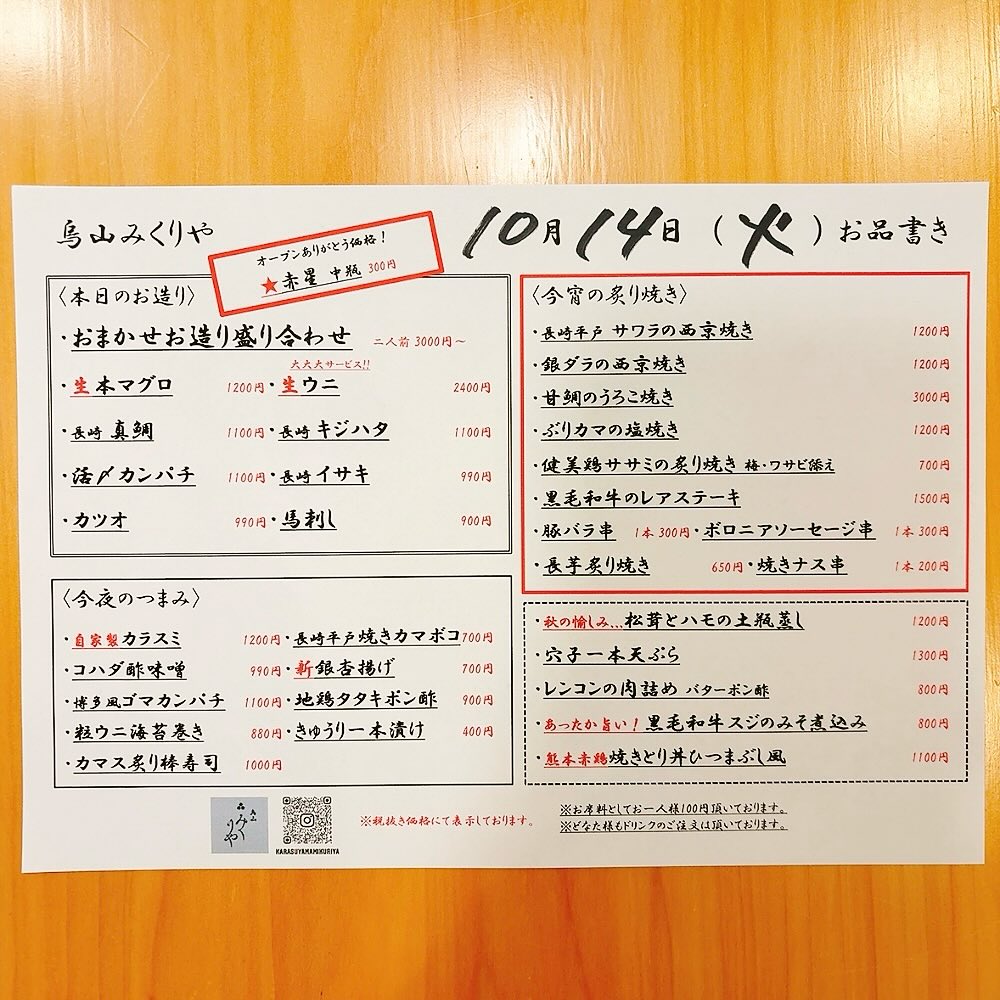 烏山みくりや
オープンありがとう価格！
★赤星 中瓶 300円
10月14日（火）お品書き
〈本日のお造り〉
・おまかせお造り盛り合わせ 二人前 3000円～
大大大サービス!!
・生本マグロ 1200円・生ウニ 2400円
・長崎 真鯛 1100円・長崎 キジハタ 1100円
・活〆カンパチ 1100円・長崎 イサキ 990円
・カツオ 990円・馬刺し 900円
〈今夜のつまみ〉
・自家製カラスミ 1200円・長崎平戸焼きカマボコ700円
・コハダ酢味噌 990円・新銀杏揚げ 700円
・博多風ゴマカンパチ 1100円・地鶏タタキポン酢 900円
・粒ウニ海苔巻き 880円・きゅうり一本漬け 400円
・カマス炙り棒寿司 1000円
〈今宵の炙り焼き〉
・長崎平戸 サワラの西京焼き 1200円
・銀ダラの西京焼き 1200円
・甘鯛のうろこ焼き 3000円
・ぶりカマの塩焼き 1200円
・健美鶏ササミの炙り焼き 梅・ワサビ添え 700円
・黒毛和牛のレアステーキ 1500円
・豚バラ串 1本 300円・ボロニアソーセージ串 1本 300円
・長芋炙り焼き 650円・焼きナス串 1本 200円
・秋の愉しみ...松茸とハモの土瓶蒸し 1200円
・穴子一本天ぷら 1300円
・レンコンの肉詰め バターポン酢 800円
・あったか旨い！黒毛和牛スジのみそ煮込み 800円
・熊本赤鶏焼きとり丼ひつまぶし風 1100円
みくりや
KARASUYAMAMIKURIYA
※税抜き価格にて表示しております。
※お席料としてお一人様100円頂いております。
※どなた様もドリンクのご注文は頂いております。